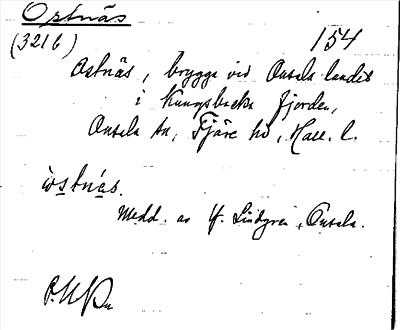 Ostnäs
(321b) 154
Ostnäs, brygga vid Onsala landet
i Kungsbacka fjorden,
Onsala sn, Fjäre hd, Hall. l.
òstnä́s.
Medd. av Lindgren, Onsala.